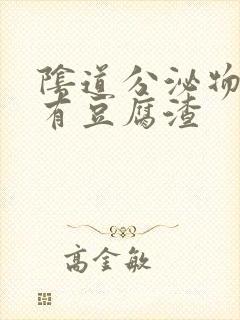 陰道分泌物
有豆腐渣
高金敏